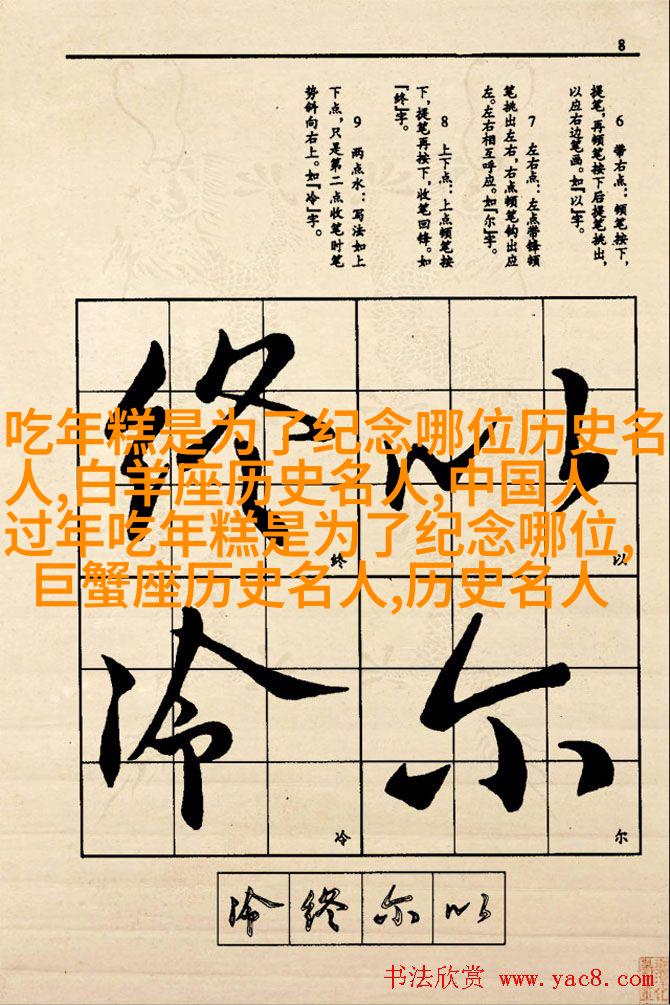 8
6 带右点：顿笔按下，
提笔，再顿笔按下后提笔挑出，
以应右边笔画。如『以』字。
7 左右点：左点带锋顿
笔挑出左右，右点顿笔钩出应
左。左右相互呼应。如『尔』字。
8 上下点：上点顿笔按
下，提笔再按下，收笔回锋。如
『终』字。
9 两点水：写法如上
下点，只是第二点收笔时笔
势斜向右上。如『冷』字。
吃年糕是为了纪念哪位历史名
人,白羊座历史名人,中国人
过年吃年糕是为了纪念哪位,
巨蟹座历史名人,历史名人
以
终
尔
冷
以
终
尔
冷
冷 终 尔 以
书法欣赏 www.yac8.com